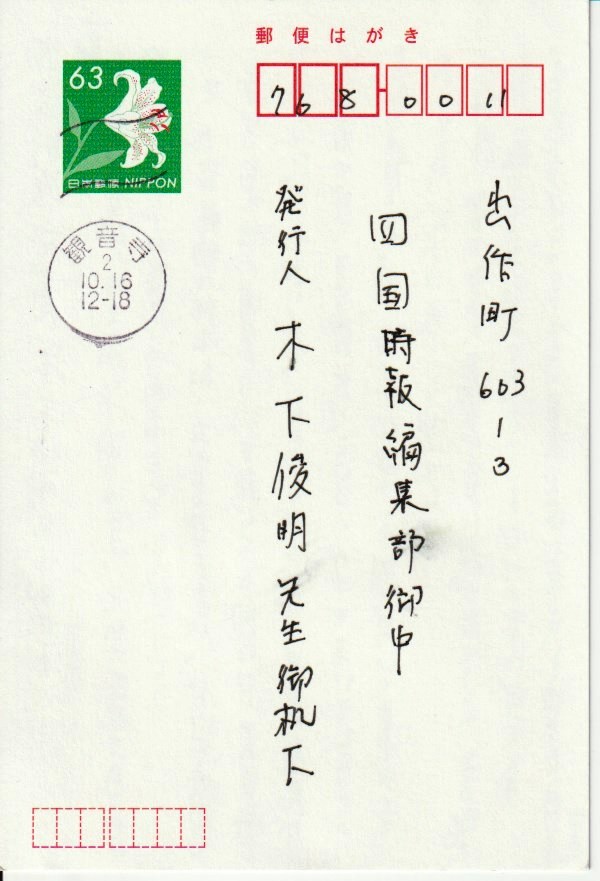 郵便はがき
768-0011
63
日本郵便 NIPPON
観音寺
2
10.16
12-18
出作町 663-3
四国時報編集部御中
発行人 木下俊明先生御机下